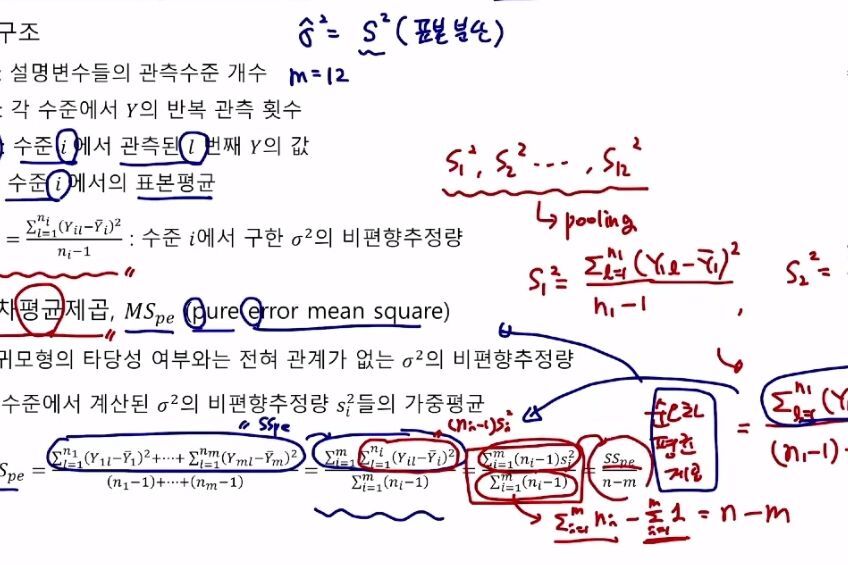 구조
$\hat{\sigma}^2 = S^2$ (표본분산)
: 설명변수들의 관측수준 개수 m=12
: 각 수준에서 Y의 반복 관측 횟수
: 수준 i에서 관측된 l번째 Y의 값
수준 i에서의 표본평균
$S_1^2, S_2^2 \cdots, S_{12}^2$
↳ pooling
$= \frac{\sum_{l=1}^{n_i}(Y_{il}-\bar{Y}_i)^2}{n_i-1}$ : 수준 i에서 구한 $\sigma^2$의 비편향추정량
$S_1^2 = \frac{\sum_{l=1}^{n_1}(Y_{1l}-\bar{Y}_1)^2}{n_1-1}$ , $S_2^2 =$
차평균제곱, $MS_{pe}$ (pure error mean square)
귀모형의 타당성 여부와는 전혀 관계가 없는 $\sigma^2$의 비편향추정량
수준에서 계산된 $\sigma^2$의 비편향추정량 $s_i^2$들의 가중평균
" SSpe
$(n_i-1)S_i^2$
$S_{pe} = \frac{\sum_{l=1}^{n_1}(Y_{1l}-\bar{Y}_1)^2+\cdots+\sum_{l=1}^{n_m}(Y_{ml}-\bar{Y}_m)^2}{(n_1-1)+\cdots+(n_m-1)} = \frac{\sum_{i=1}^{m}\sum_{l=1}^{n_i}(Y_{il}-\bar{Y}_i)^2}{\sum_{i=1}^{m}(n_i-1)} = \frac{\sum_{i=1}^{m}(n_i-1)s_i^2}{\sum_{i=1}^{m}(n_i-1)} = \frac{SS_{pe}}{n-m}$
평균
제곱
$= \frac{\sum_{l=1}^{n_1}(Y_1}{(n_1-1)}$
$\sum_{i=1}^{m} n_i - \sum_{i=1}^{m} 1 = n-m$